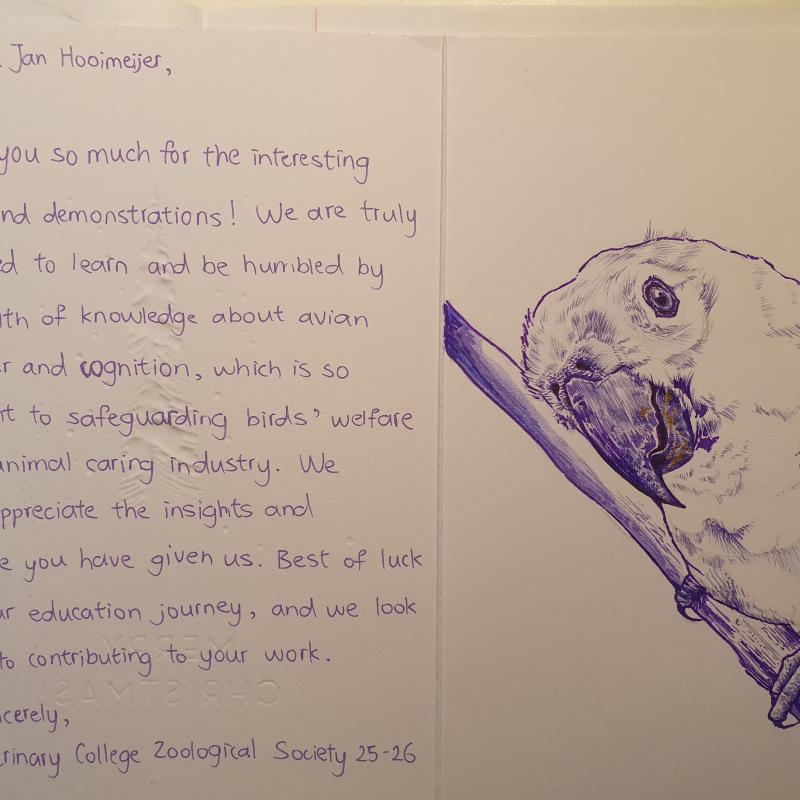 . Jan Hooimeijer,
you so much for the interesting
nd demonstrations! We are truly
ed to learn and be humbled by
lth of knowledge about avian
r and cognition, which is so
nt to safeguarding birds' welfare
animal caring industry. We
ppreciate the insights and
e you have given us. Best of luck
ur education journey, and we look
to contributing to your work.
ncerely,
rinary College Zoological Society 25-26
MERRY
CHRISTMAS